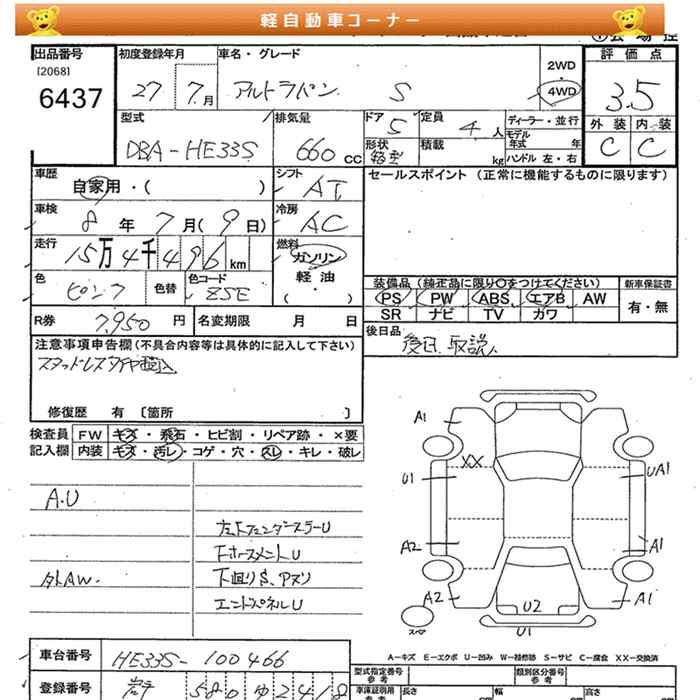 軽自動車コーナー
出品番号 初度登録年月 車名・グレード 評価点
[2068]
6437
27 7月 アルトラパン S
2WD
4WD
3.5
型式 排気量 ドア 定員 ディーラー・並行 外装 内装
DBA-HE33S 660cc 5 4人 モデル年式 年 C C
形状 積載 kg ハンドル 左・右
箱型
車歴 シフト セールスポイント (正常に機能するものに限ります)
自家用・( ) AT
車検 冷房
8年 7月(9日) AC
走行 燃料
15万4千496km ガソリン
軽油
・( )
色 色替 色コード
ピンク ZSE
装備品 (純正品に限り○をつけてください) 新車保証書
PS PW ABS エアB AW 有・無
SR ナビ TV カワ
R券 7,950円 名変期限 月 日
後日品
後日 取説
注意事項申告欄 (不具合内容等は具体的に記入して下さい)
スタッドレスタイヤ積込
修復歴 有 [箇所 ]
検査員 FW キズ・飛石・ヒビ割・リペア跡・×要
記入欄 内装 キズ・汚レ・コゲ・穴・スレ・キレ・破レ
A.U
外AW.
下回りS、アズリ
エンドパネルU
A1
XX
U1
UA1
A2
A1
A2
U2
A1
U1
A-キズ E-エクボ U-凹み W-補修跡 S-サビ C-腐食 XX-交換済
車台番号 HE33S-100466
型式指定番号 参考 類別区分番号 参考
登録番号 岩手 580 ゆ 2418
車庫証明用 参考 長さ 幅 高さ